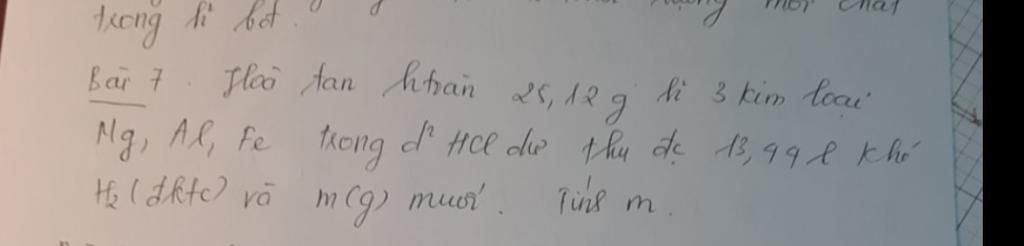 trong h² bđ.
Bài 7. Hoà tan htoàn 25,12g h² 3 kim loại
Mg, Al, Fe trong d² HCl dư thu đc 13,44l khí
H₂ (đktc) và m(g) muối. Tính m.